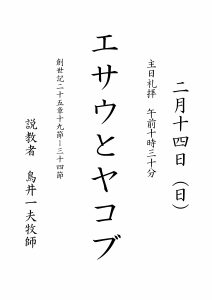 二月十四日（日）
主日礼拝　午前十時三十分
エサウとヤコブ
創世記二十五章十九節ー三十四節
説教者　鳥井一夫牧師